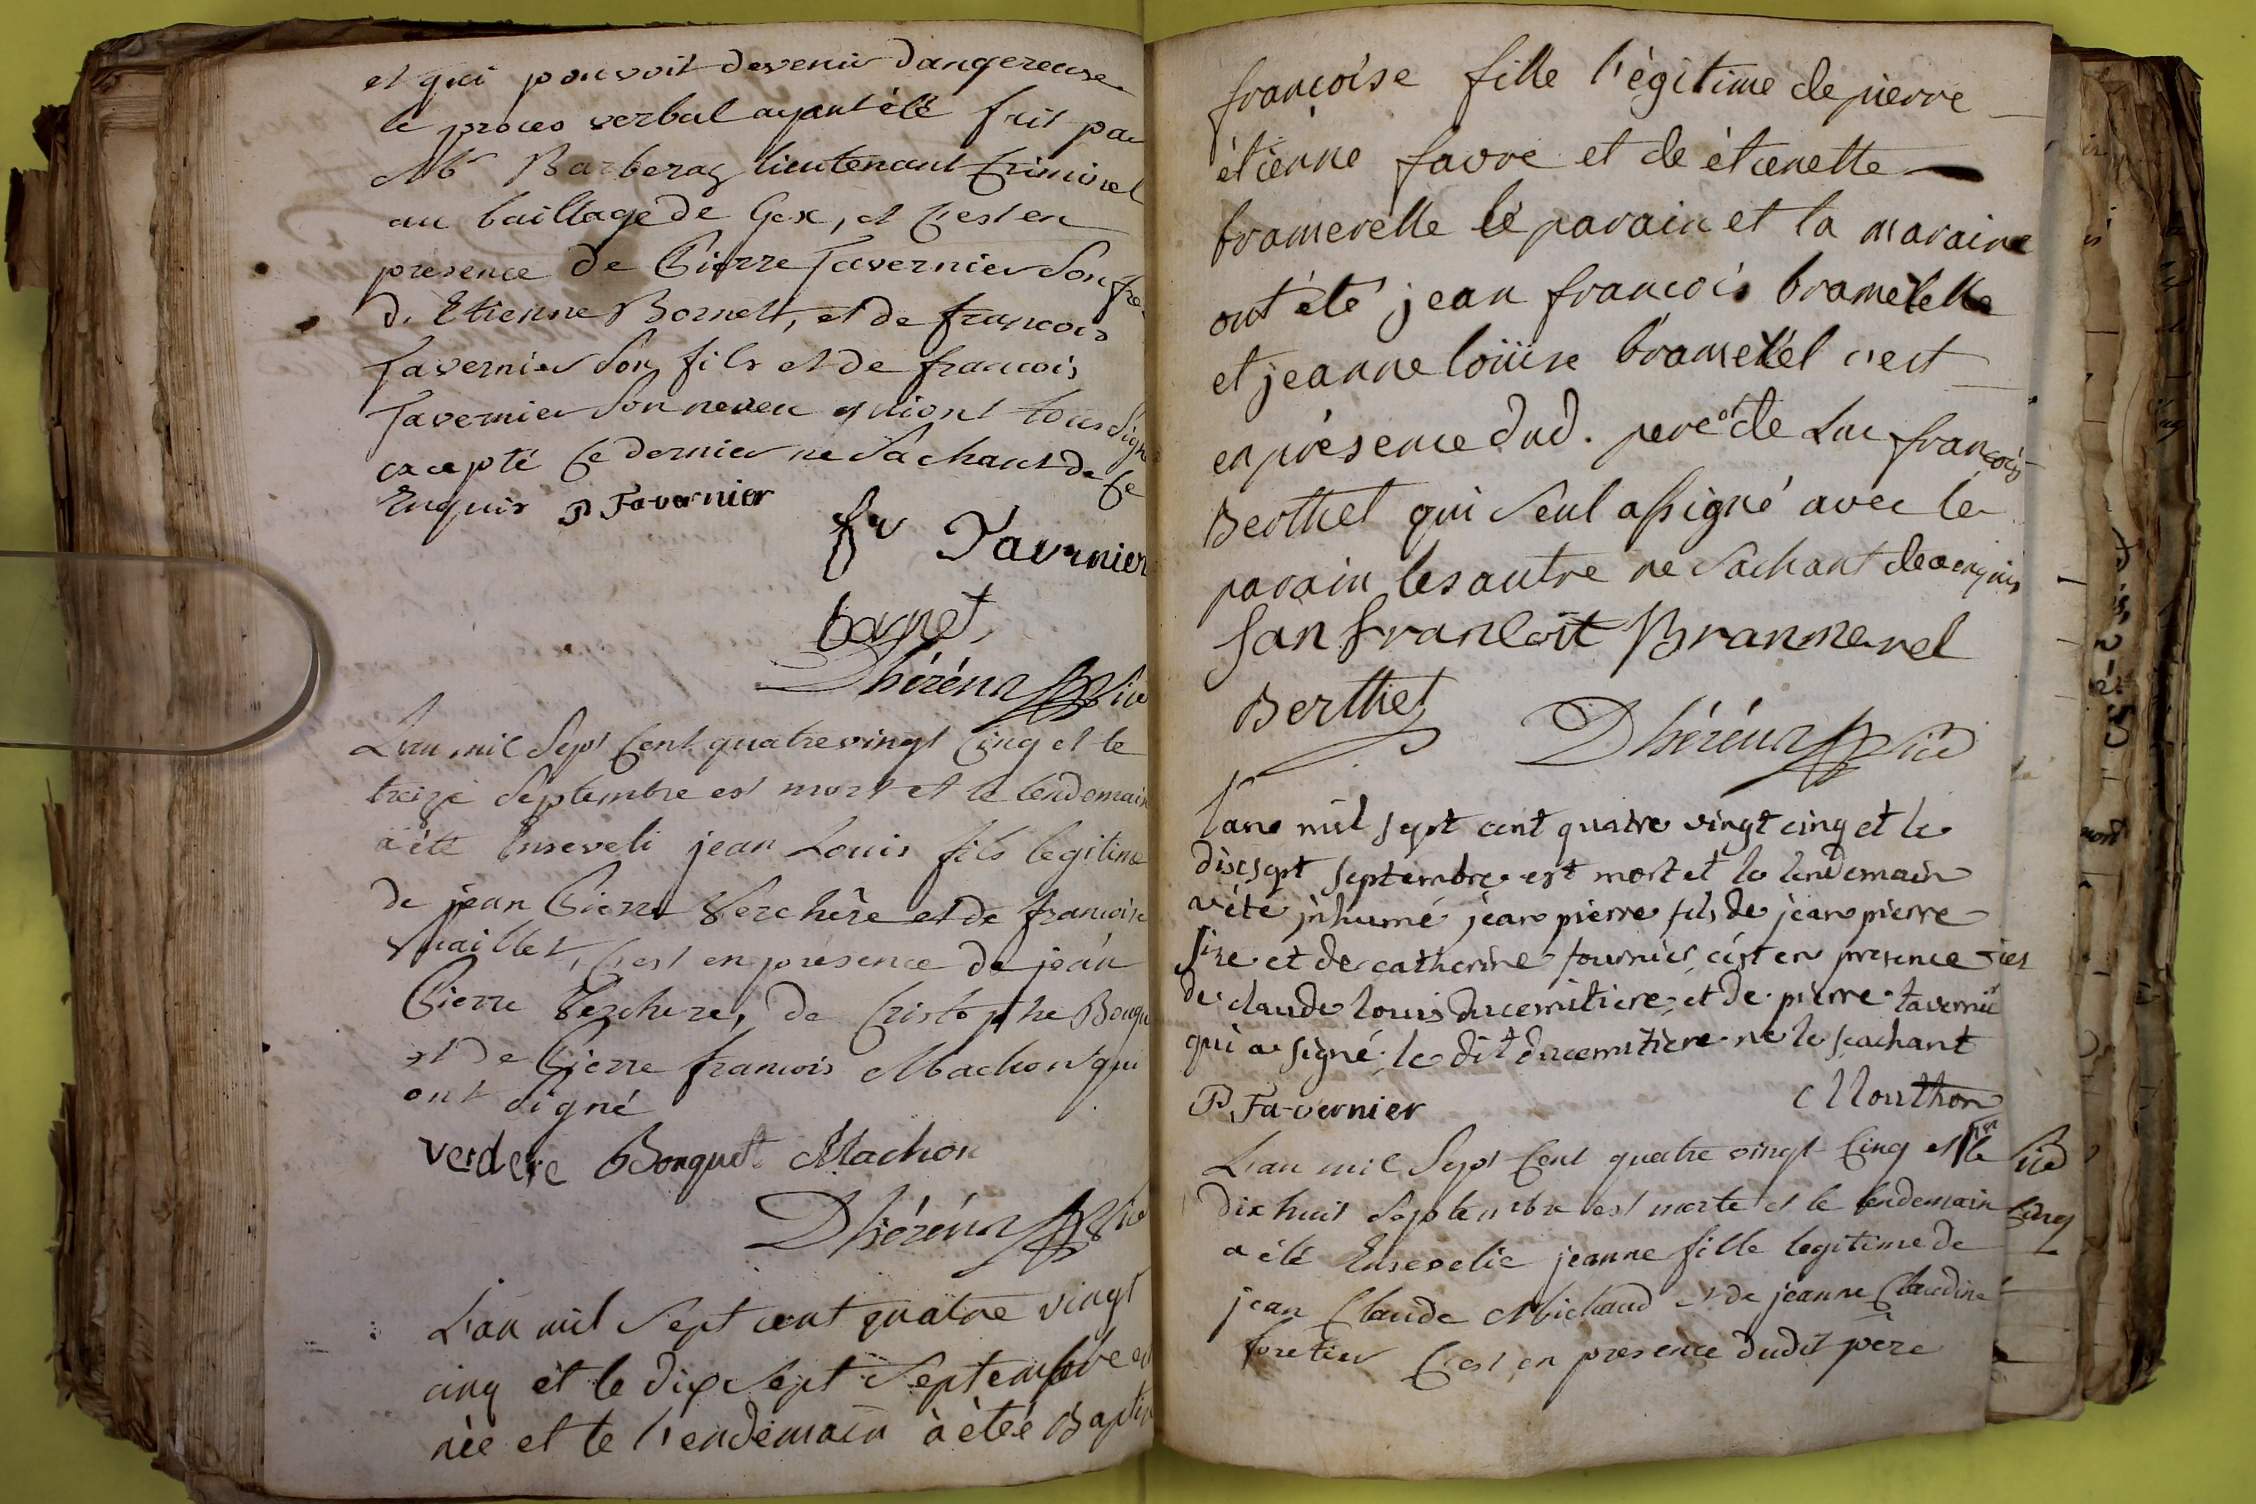 et qui pouvoit devenir dangereuse
le proces verbal ayant été fait par
Mr Barberaz lieutenant Criminel
au baillage de Gex, et C'est en
presence de Pierre Tavernier Son fre
d'Etienne Bornet, et de francois
Tavernier Son fils et de francois
Tavernier Son neveu qui ont tous Signé
excepté Ce dernier ne Sachant de Ce
Enquis P Tavernier
fr Tavernier
bornet
Dhérénz Vic
L'an mil Sept Cent quatrevingt Cinq et le
treize Septembre est mort et le lendemain
a été Enseveli jean Louis fils legitime
de jean Pierre Verchère et de francoise
Maillet, C'est en présence de jean
Pierre Verchere, de Cristophe Bouqu
et de Pierre francois Machon qui
ont signé
verdere Bouquet Machon
Dhérénz Vic
L'an mil Sept cent quatre vingt
cinq èt le dix Sept Septembre est
née et le l'endemain à étée Bapti
françoise fille l'égitime de pierre
étienne favre et de étienette
bramerelle lé parain et la maraine
ont été jean francois bramerelle
et jeanne loüise bramerel c'est
en présence dud. pere et de Luc francois
Berthet qui Seul a signé avec le
parain les autre ne Sachant de ce enquis
Jan francoit Brannerel
Berthet
Dhérénz Vic
l'an mil sept cent quatre vingt cinq et le
disesept septembre est mort et le lendemain
a été inhumé jean pierre fils de jean pierre
sire et de catherine fournier, c'est en presence
de claude louis ducemitiere, et de pierre tavernier
qui a signé, le dit ducemitiere ne le scachant
P Tavernier Mouthon
L'an mil Sept Cent quatre vingt Cinq et le
dix huit Septembre est morte et le lendemain
a été Ensevelie jeanne fille legitime de
jean Claude Michaud et de jeanne Claudine
foretier C'est en presence dudit père